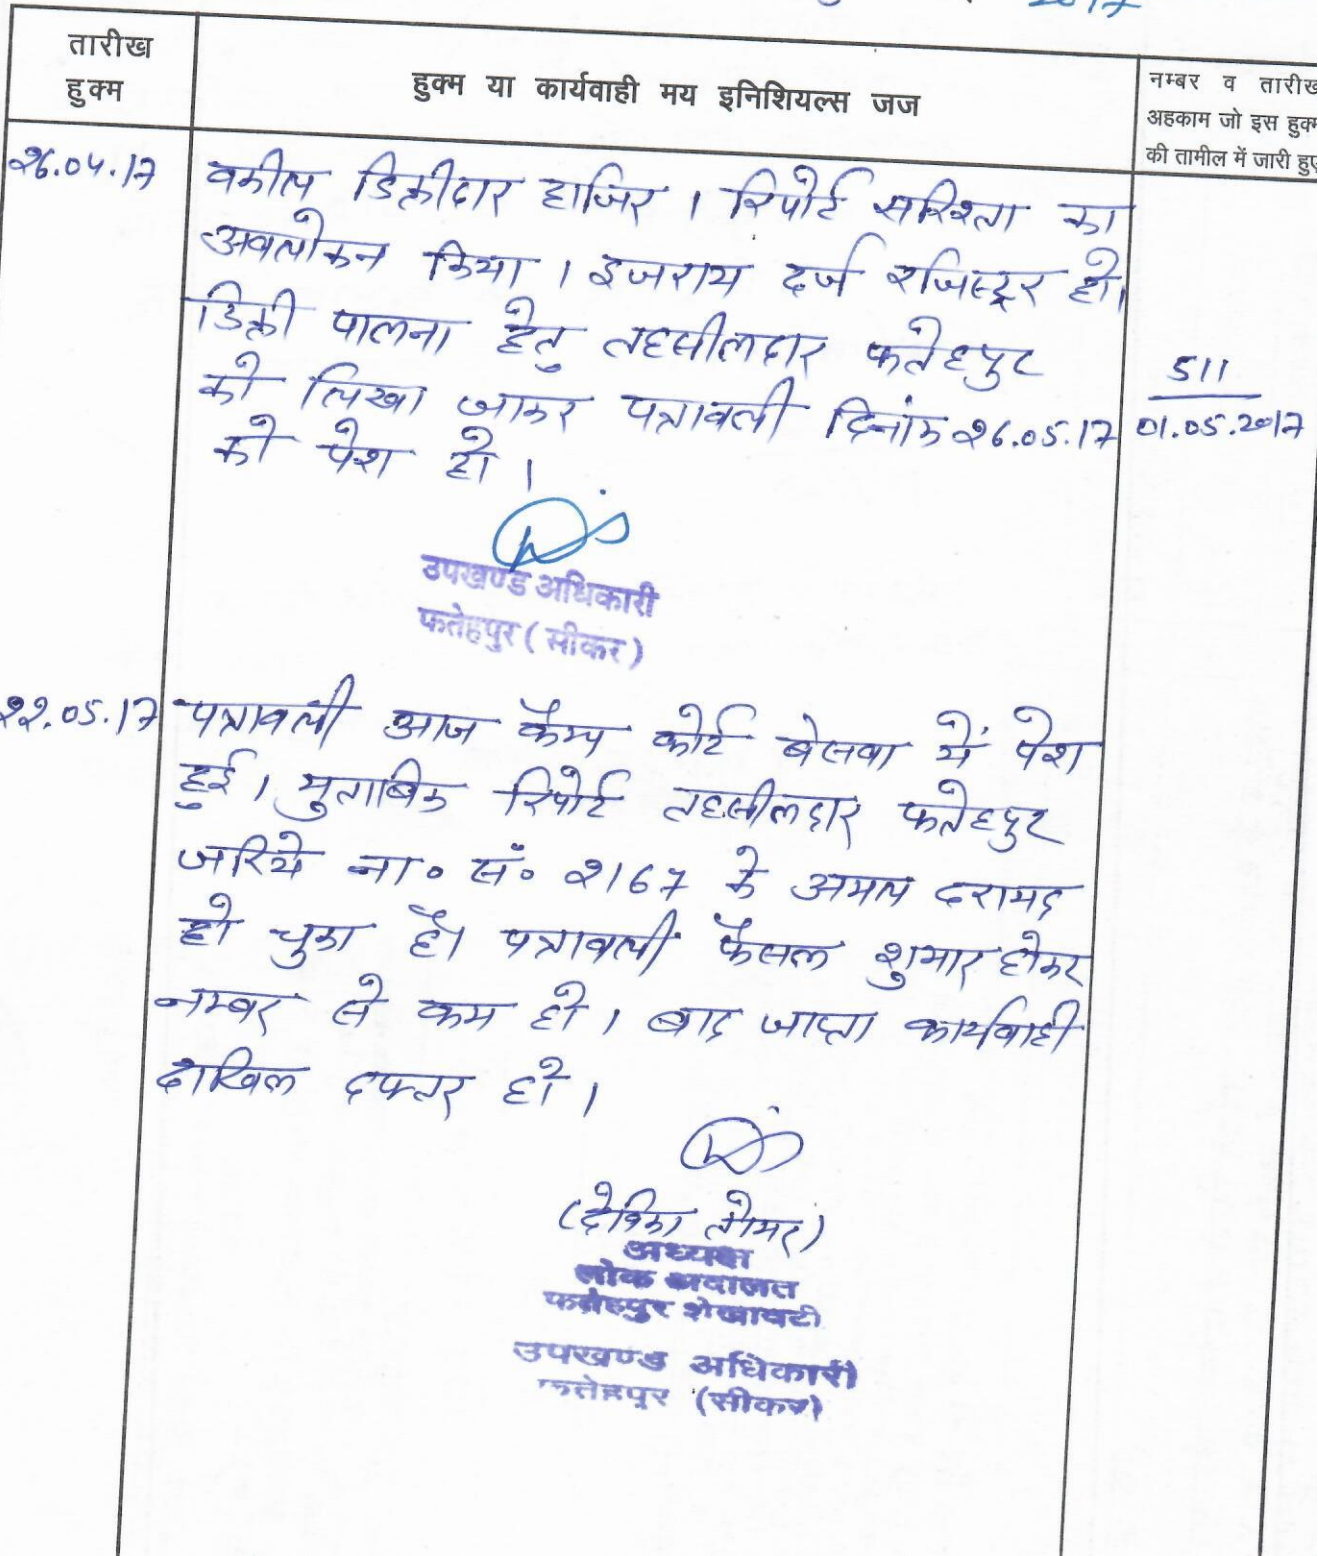 2017
तारीख
हुक्म
हुक्म या कार्यवाही मय इनिशियल्स जज
नम्बर व तारीख
अहकाम जो इस हुक्म
की तामील में जारी हुए
२६.०४.१७
वकील डिक्रीदार हाजिर । रिपोर्ट सरिश्ता का
अवलोकन किया । इजराय दर्ज रजिस्ट्रर हो।
डिक्री पालना हेतु तहसीलदार फतेहपुर
को लिखा जाकर पत्रावली दिनांक २६.०५.१७
को पेश हो ।
511
01.05.2017
उपखण्ड अधिकारी
फतेहपुर ( सीकर )
२२.०५.१७
पत्रावली आज कैम्प कोर्ट बेसवा में पेश
हुई। मुताबिक रिपोर्ट तहसीलदार फतेहपुर
जरिये ना० सं० २१६७ के अमल दरामद
हो चुका है। पत्रावली फैसल शुमार होकर
नम्बर से कम हो । बाद जाप्ता कार्यवाही
दाखिल दफ्तर हो ।
(देविका तोमर)
अध्यक्ष
लोक अदालत
फतेहपुर शेखावटी
उपखण्ड अधिकारी
फतेहपुर (सीकर)